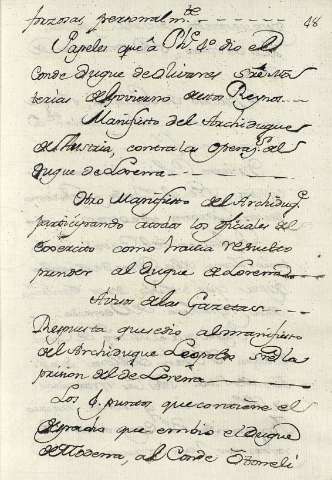 forzosas personalm.te 48
Papeles que â Ph.e 4.º dio el
Conde Duque de Olivares sre ma
terias del Govierno destos Reynos
Manifiesto del Archiduque
de Austria, contra las operaz.s del
Duque de Lorena
Otro Manifiesto del Archiduq.e
participando atodos los oficiales del
exercito como havia resuelto
prender al Duque de Lorena
Aviso de las Gazetas
Respuesta que se dio al manifiesto
del Archiduque Leopoldo sre la
prision del de Lorena
Los puntos que contiene el
despacho que embio el Duque
de Modena, al Conde Ottoneli